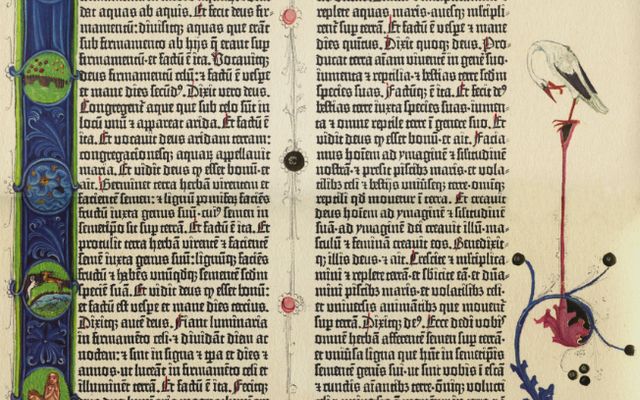 das aquas ab aquis. Et fecit deus fir-
mamentū: divisitq; aquas que erāt
sub firmamento ab hijs q̄ erant sup
firmamentū: et factū ē ita. Vocavitq;
deus firmamentū celū: ⁊ factū ē vespe
et mane dies secūd9. Dixit vero deus.
Congregent̄ aque que sub celo sūt in
locū vnū ⁊ appareat arida. Et factū ē
ita. Et vocavit deus aridam terram:
congregacionesq; aquaꝝ appellavit
maria. Et vidit deus ꝙ esset bonū· et
ait. Germinet terra herbā virentem et
facientē semen: ⁊ lignū pomifeꝝ faciēs
fructū iuxta genus suū· cui9 semen in
semetipō sit sup terrā. Et factū ē ita. Et
protulit terra herbā virentē ⁊ facientē
semē iuxta genus suū: lignūq; faciēs
fructū ⁊ habēs vnūqdq; sementē scdm
speciē suā. Et vidit deus ꝙ esset bonū:
et factū est vespe et mane dies tercius.
Dixitq; autē deus. Fiant luminaria
in firmamēto celi· ⁊ dividāt diem ac
noctem: ⁊ sint in signa ⁊ tpa et dies ⁊
annos· ut luceāt in firmamēto celi et
illuminent terrā. Et factū ē ita. Fecitq;
replete aquas maris· avesq; mltiplicē-
tur sup terrā. Et factū ē vespe ⁊ mane
dies quintus. Dixit quoq; deus. Pro-
ducat terra aīam viventē in genē suo·
iumenta ⁊ reptilia· ⁊ bestias terre scdm
species suas. Factūq; ē ita. Et fecit de9
bestias terre iuxta species suas· iumen-
ta ⁊ omne reptile terre ī genere suo. Et
vidit deus ꝙ esset bonū· et ait. Facia-
mus hoīem ad ymaginē ⁊ silitudinē
nostrā· ⁊ presit piscibz maris· et vola-
tilibz celi ⁊ bestijs vniūseq; terre· omīq;
reptili qd movetur ī terra. Et creavit
deus hoīem ad ymaginē ⁊ silitudinē
suam· ad ymaginē dei creavit illū· ma-
sculū ⁊ feminā creavit eos. Benedixit-
q; illis deus· et ait. Crescite ⁊ mltiplica-
mini ⁊ replete terrā· et sbicite eā· et dña-
mini piscibz maris· et volatilibz celi·
et vniversis animātibz que moventr
sup terrā. Dixitq; de9. Ecce dedi vobis
omnem herbā afferentē semen sup terrā·
et vniūsa ligna que hñt in semetipsis
sementē genēis sui· ut sint vobis ī escā
⁊ cūctis aīantibz terre· omīq; volucri